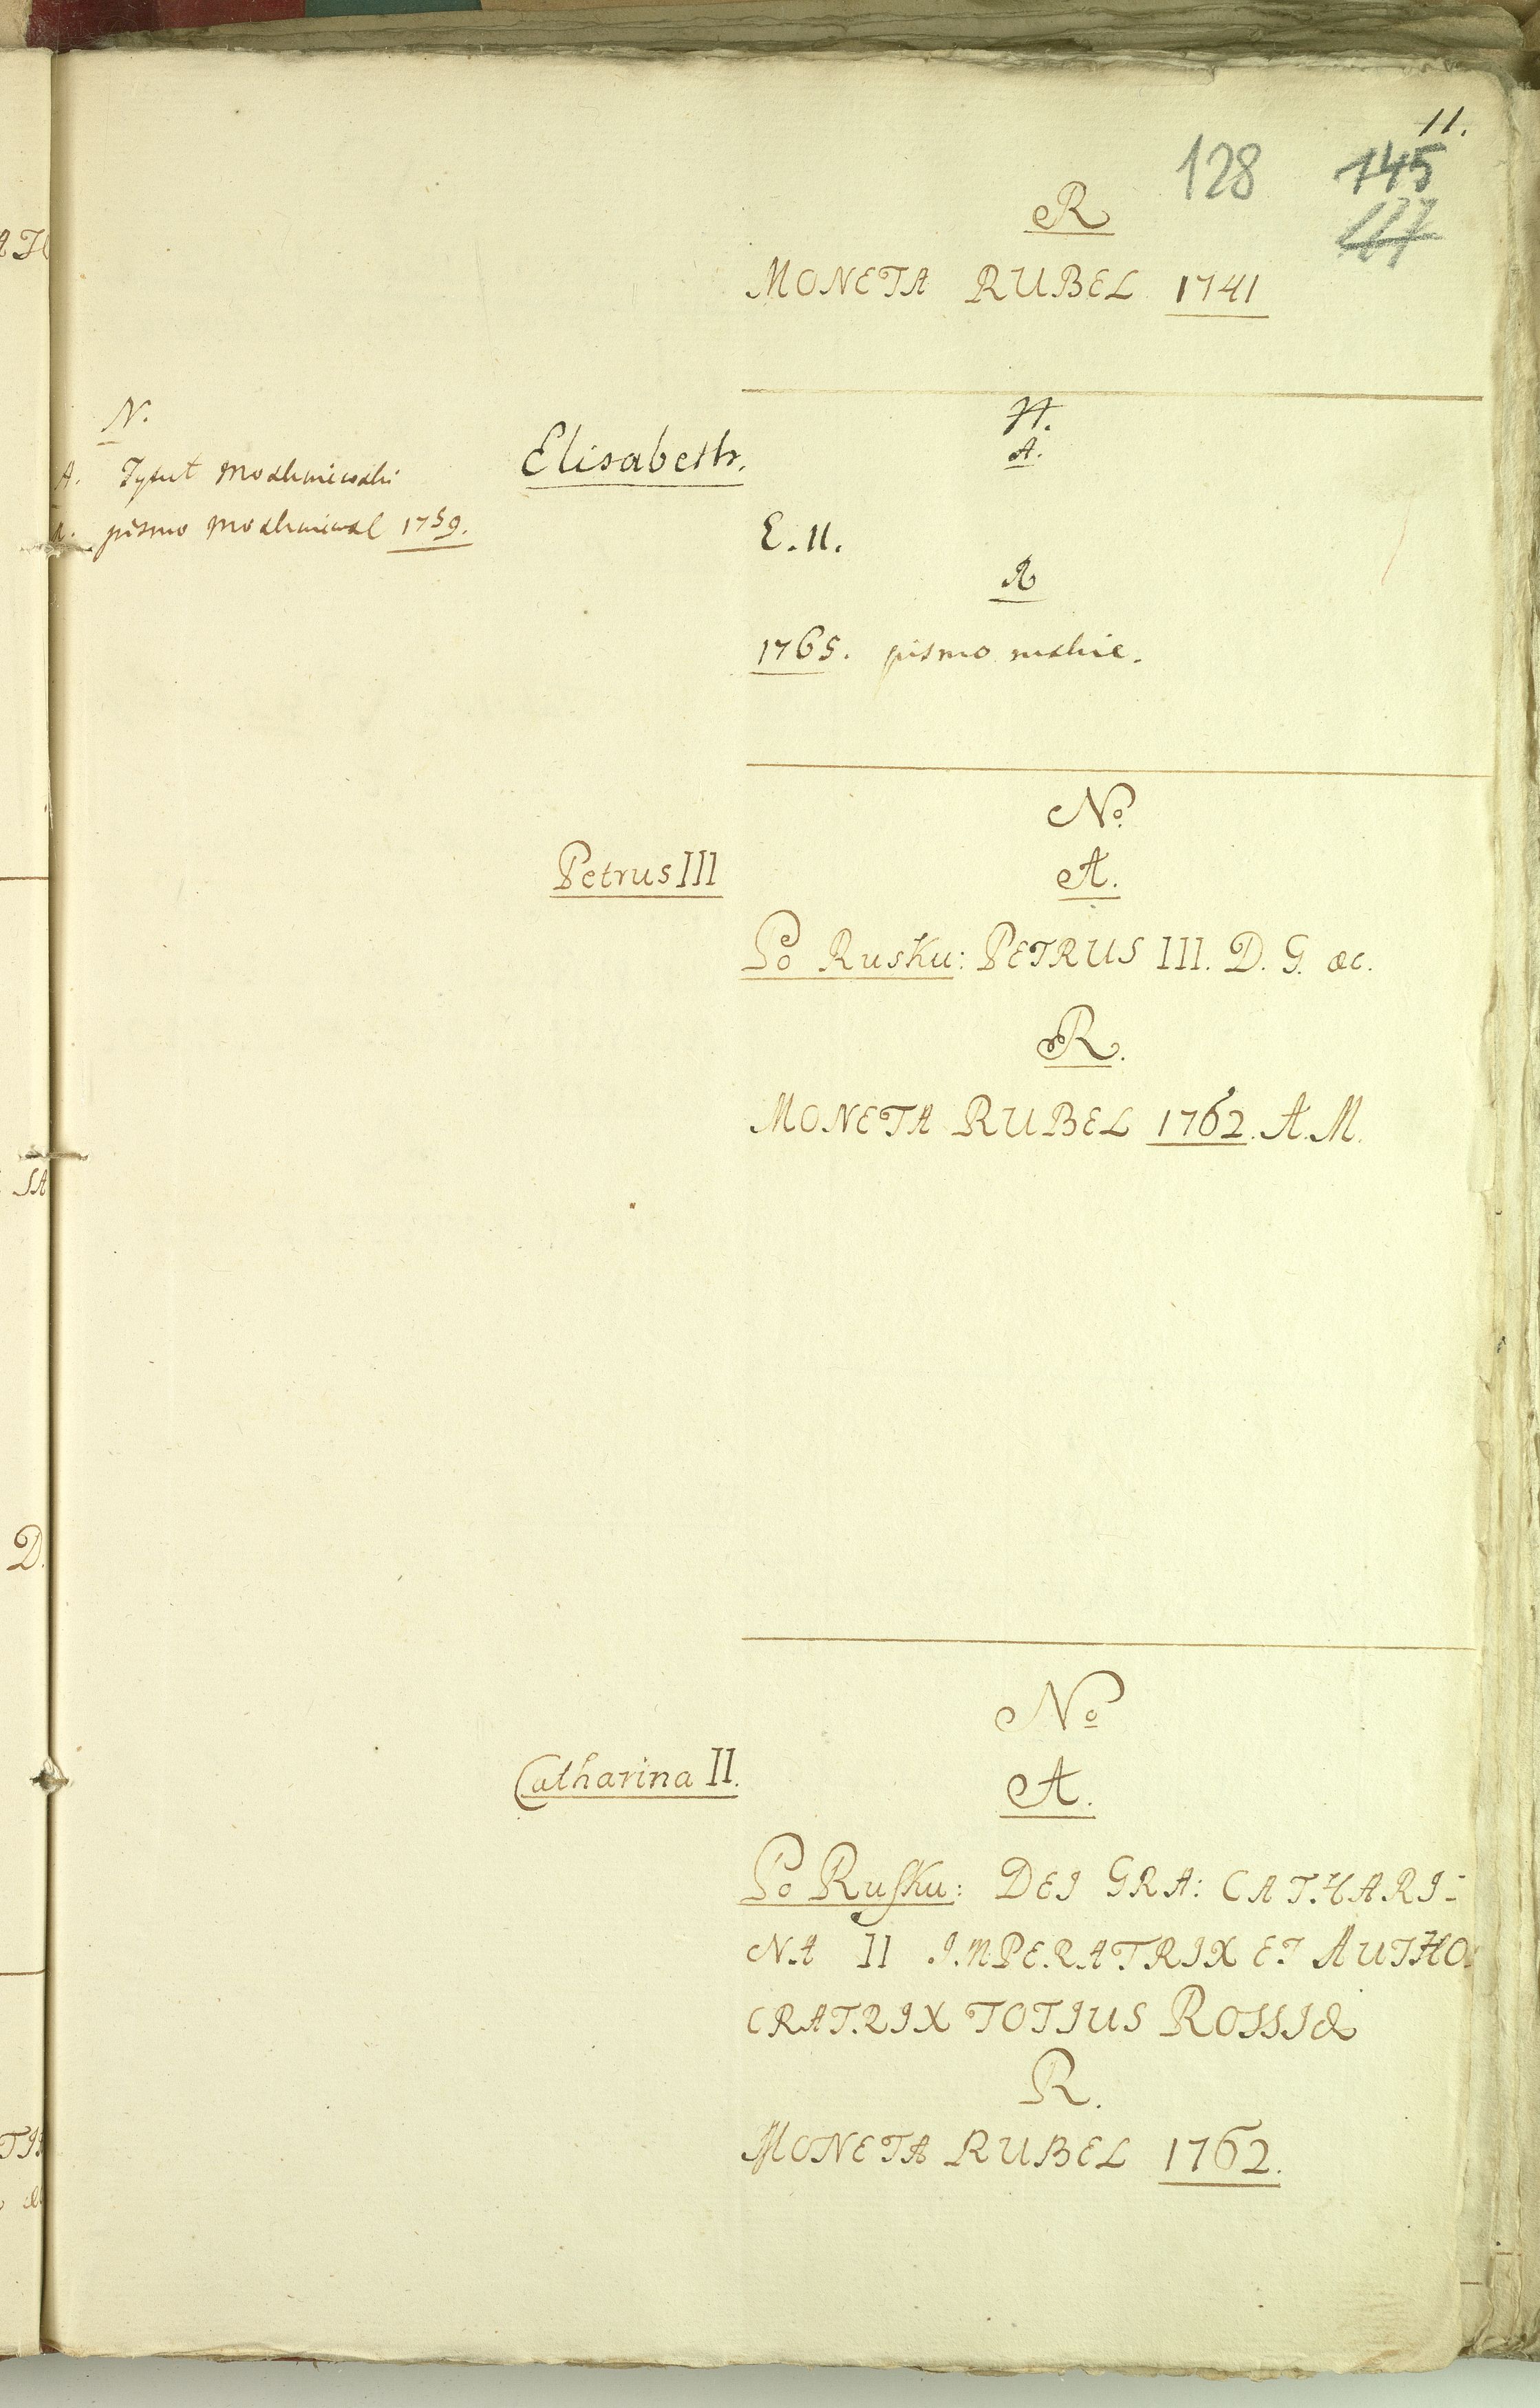 11.
128 145
117
R
MONETA RUBEL 1741
N.
A. Tytuł Moskiewski
R. pismo Moskiewsk 1759.
Elisabeth.
N.
A.
E.II.
R
1765. pismo ruskie.
No.
Petrus III
A.
Po Rusku: PETRUS III. D. G. &c.
R.
MONETA RUBEL 1762. A.M.
No
Catharina II.
A.
Po Rusku: DEI GRA: CATHARI-
NA II IMPERATRIX ET AUTHO-
CRATRIX TOTIUS ROSSIÆ
R.
MONETA RUBEL 1762.